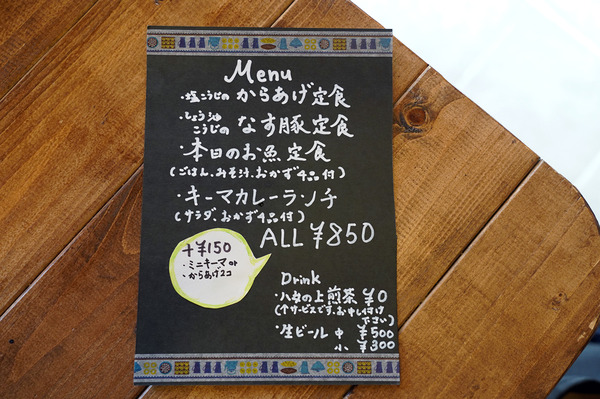 Menu
・塩こうじの からあげ定食
・しょうゆ
こうじの なす豚定食
・本日のお魚定食
(ごはん、みそ汁、おかず4品付)
・キーマカレーランチ
(サラダ、おかず4品付)
ALL ¥850
+¥150
・ミニキーマ or
・からあげ2コ
Drink
・八女の上煎茶 ¥0
(↑サービスです。お申し付け
下さい)
・生ビール 中 ¥500
小 ¥300